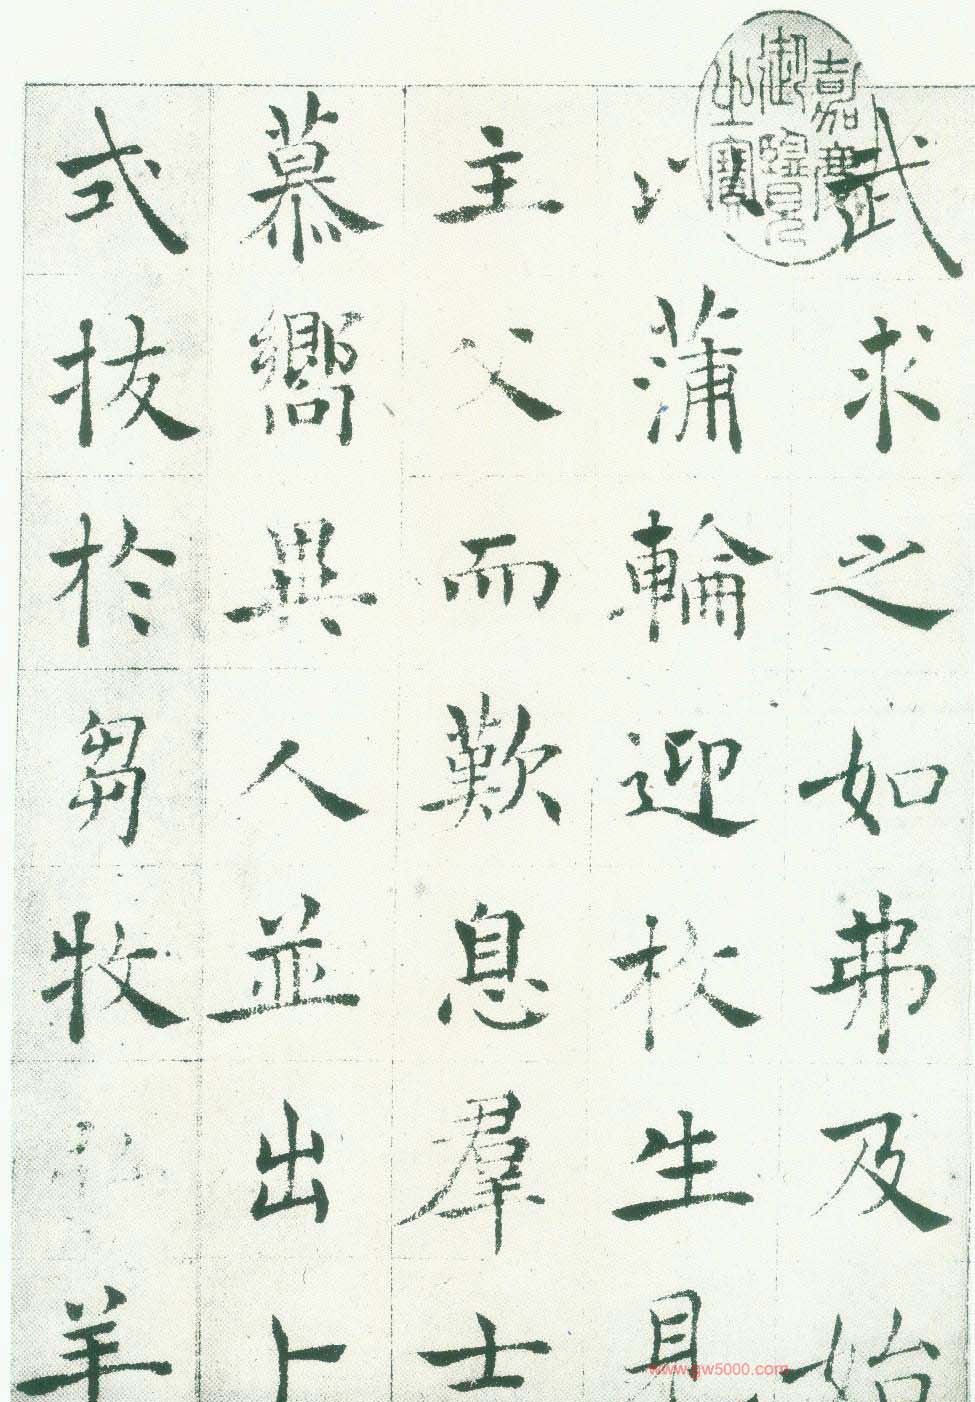 武求之如弗及始
以蒲輪迎枚生見
主父而歎息羣士
慕嚮異人並出卜
式拔於芻牧弘羊
嘉慶御覽之寶
www.gw5000.com